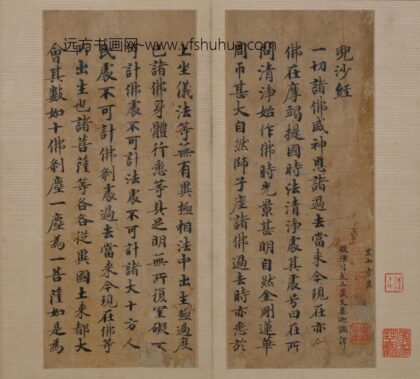 远方书画网-www.yfshuhua.com
兜沙經
一切諸佛威神恩諸過去當來今現在亦
佛在摩竭提國時法清淨處其處号曰在所
問清淨始作佛時光景甚明自然金剛蓮華
周帀甚大自然師子座諸佛過去時亦悉於
上坐儀法等無有異極相法中出生極過度
已諸佛身體行悉等具之明無所復罣礙
可計佛處不可計法處不可計諸大十方人
民處不可計佛剎處過去當來今現在佛等
所出生也諸菩薩等各各從異國土来都大
會其數如十佛剎塵一塵為一菩薩如是為